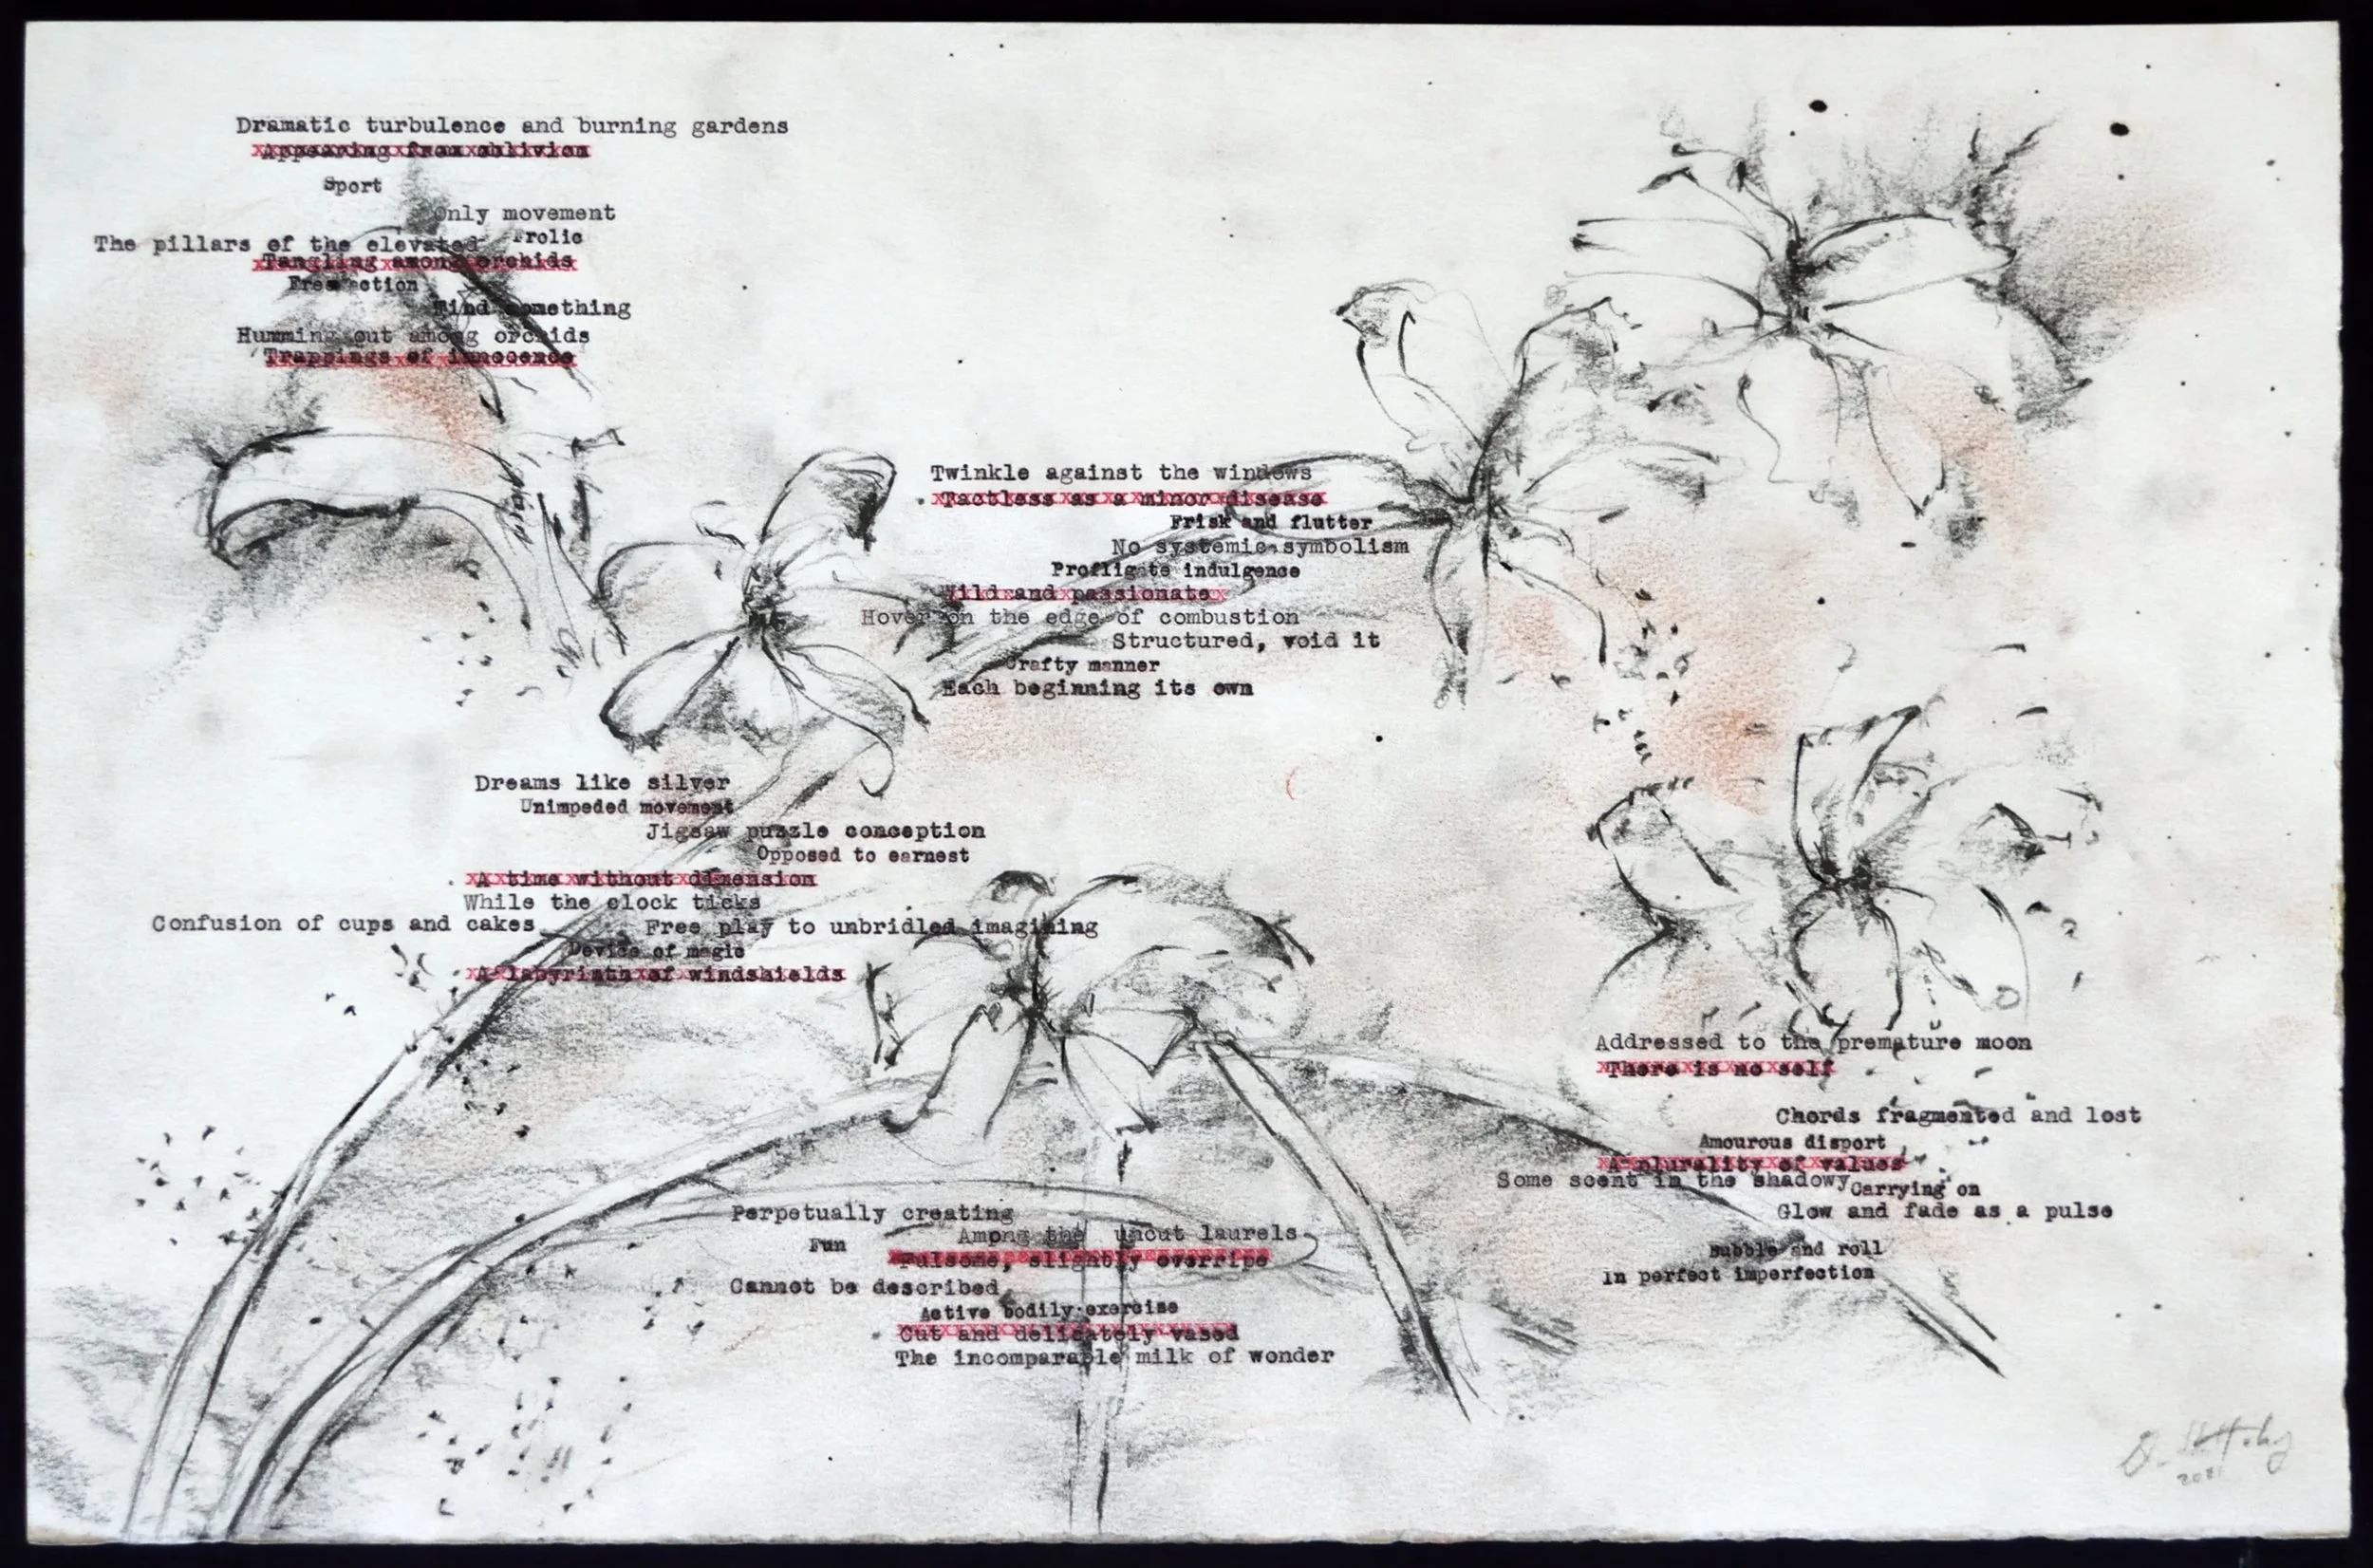 Dramatic turbulence and burning gardens
Appearing from oblivion
Sport
Only movement
Frolic
The pillars of the elevated
Tangling among orchids
Free action
Find something
Humming out among orchids
Trappings of innocence
Twinkle against the windows
Tactless as a minor disease
Frisk and flutter
No systemic symbolism
Profligate indulgence
Wild and passionate
Hover on the edge of combustion
Structured, void it
Crafty manner
Each beginning its own
Dreams like silver
Unimpeded movement
Jigsaw puzzle conception
Opposed to earnest
A time without dimension
While the clock ticks
Confusion of cups and cakes
Free play to unbridled imagining
Device of magic
A labyrinth of windshields
Addressed to the premature moon
There is no self
Chords fragmented and lost
Amourous disport
A plurality of values
Some scent in the shadowy
Carrying on
Glow and fade as a pulse
Bubble and roll
In perfect imperfection
Perpetually creating
Among the uncut laurels
Fun
Fulsome, slightly overripe
Cannot be described
Active bodily exercise
Cut and delicately vased
The incomparable milk of wonder
2021